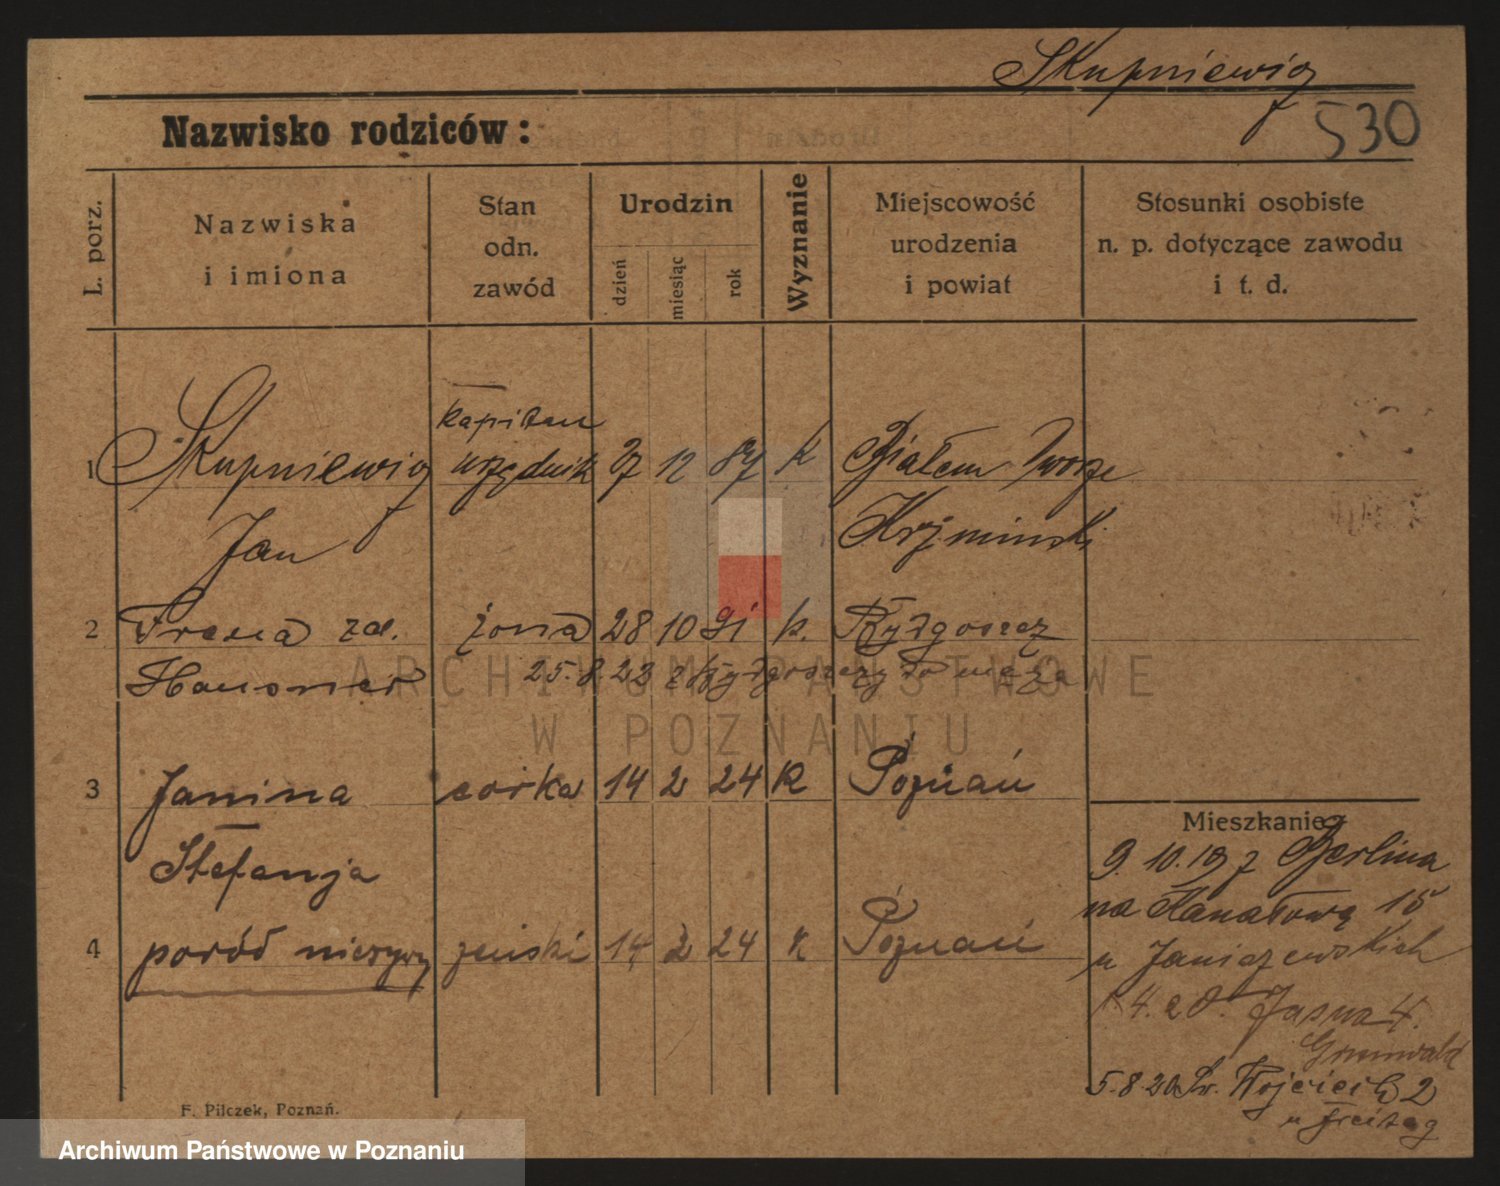 Skupniewicz
530
Nazwisko rodziców:
L. porz.
Nazwiska
i imiona
Stan
odn.
zawód
Urodzin
dzień
miesiąc
rok
Wyznanie
Miejscowość
urodzenia
i powiat
Stosunki osobiste
n. p. dotyczące zawodu
i t. d.
kapitan
1 Skupniewicz urzędnik 27 12 87 k Białem
Jan
2 zd. żona 28 10 k. Bydgoszcz
Hausner 25.8.23 z Bydgoszczy do męża
3 Janina córka 14 2 24 k Poznań
Stefanja
4 poród nieżywy żeński 14 2 24 k Poznań
Mieszkanie
9.10.19 z Berlina
na Kanałową 15
u Janiszewskich
Jasna 4.
Grunwald
5.8.20 Św. Wojciech 2
u Freitag
F. Pilczek, Poznań.
ARCHIWUM PAŃSTWOWE
W POZNANIU
Archiwum Państwowe w Poznaniu